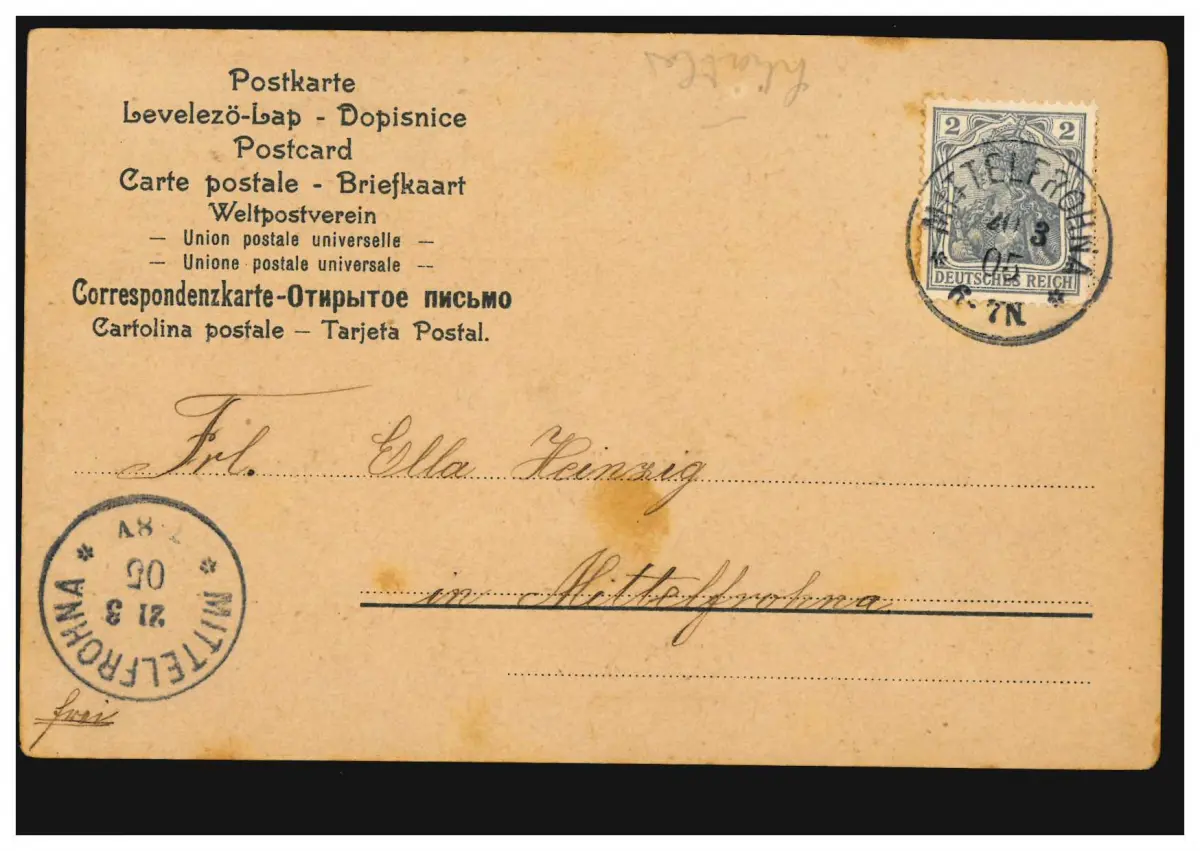 Postkarte
Levelezö-Lap - Dopisnice
Postcard
Carte postale - Briefkaart
Weltpostverein
— Union postale universelle —
— Unione postale universale —
Correspondenzkarte-Открытое письмо
Cartolina postale — Tarjeta Postal.
2 2
DEUTSCHES REICH
* MITTELFROHNA *
20 3
05
6-7N
Frl. Ella Heinzig
in Mittelfrohna
* MITTELFROHNA *
21 3
05
7-8V
frei